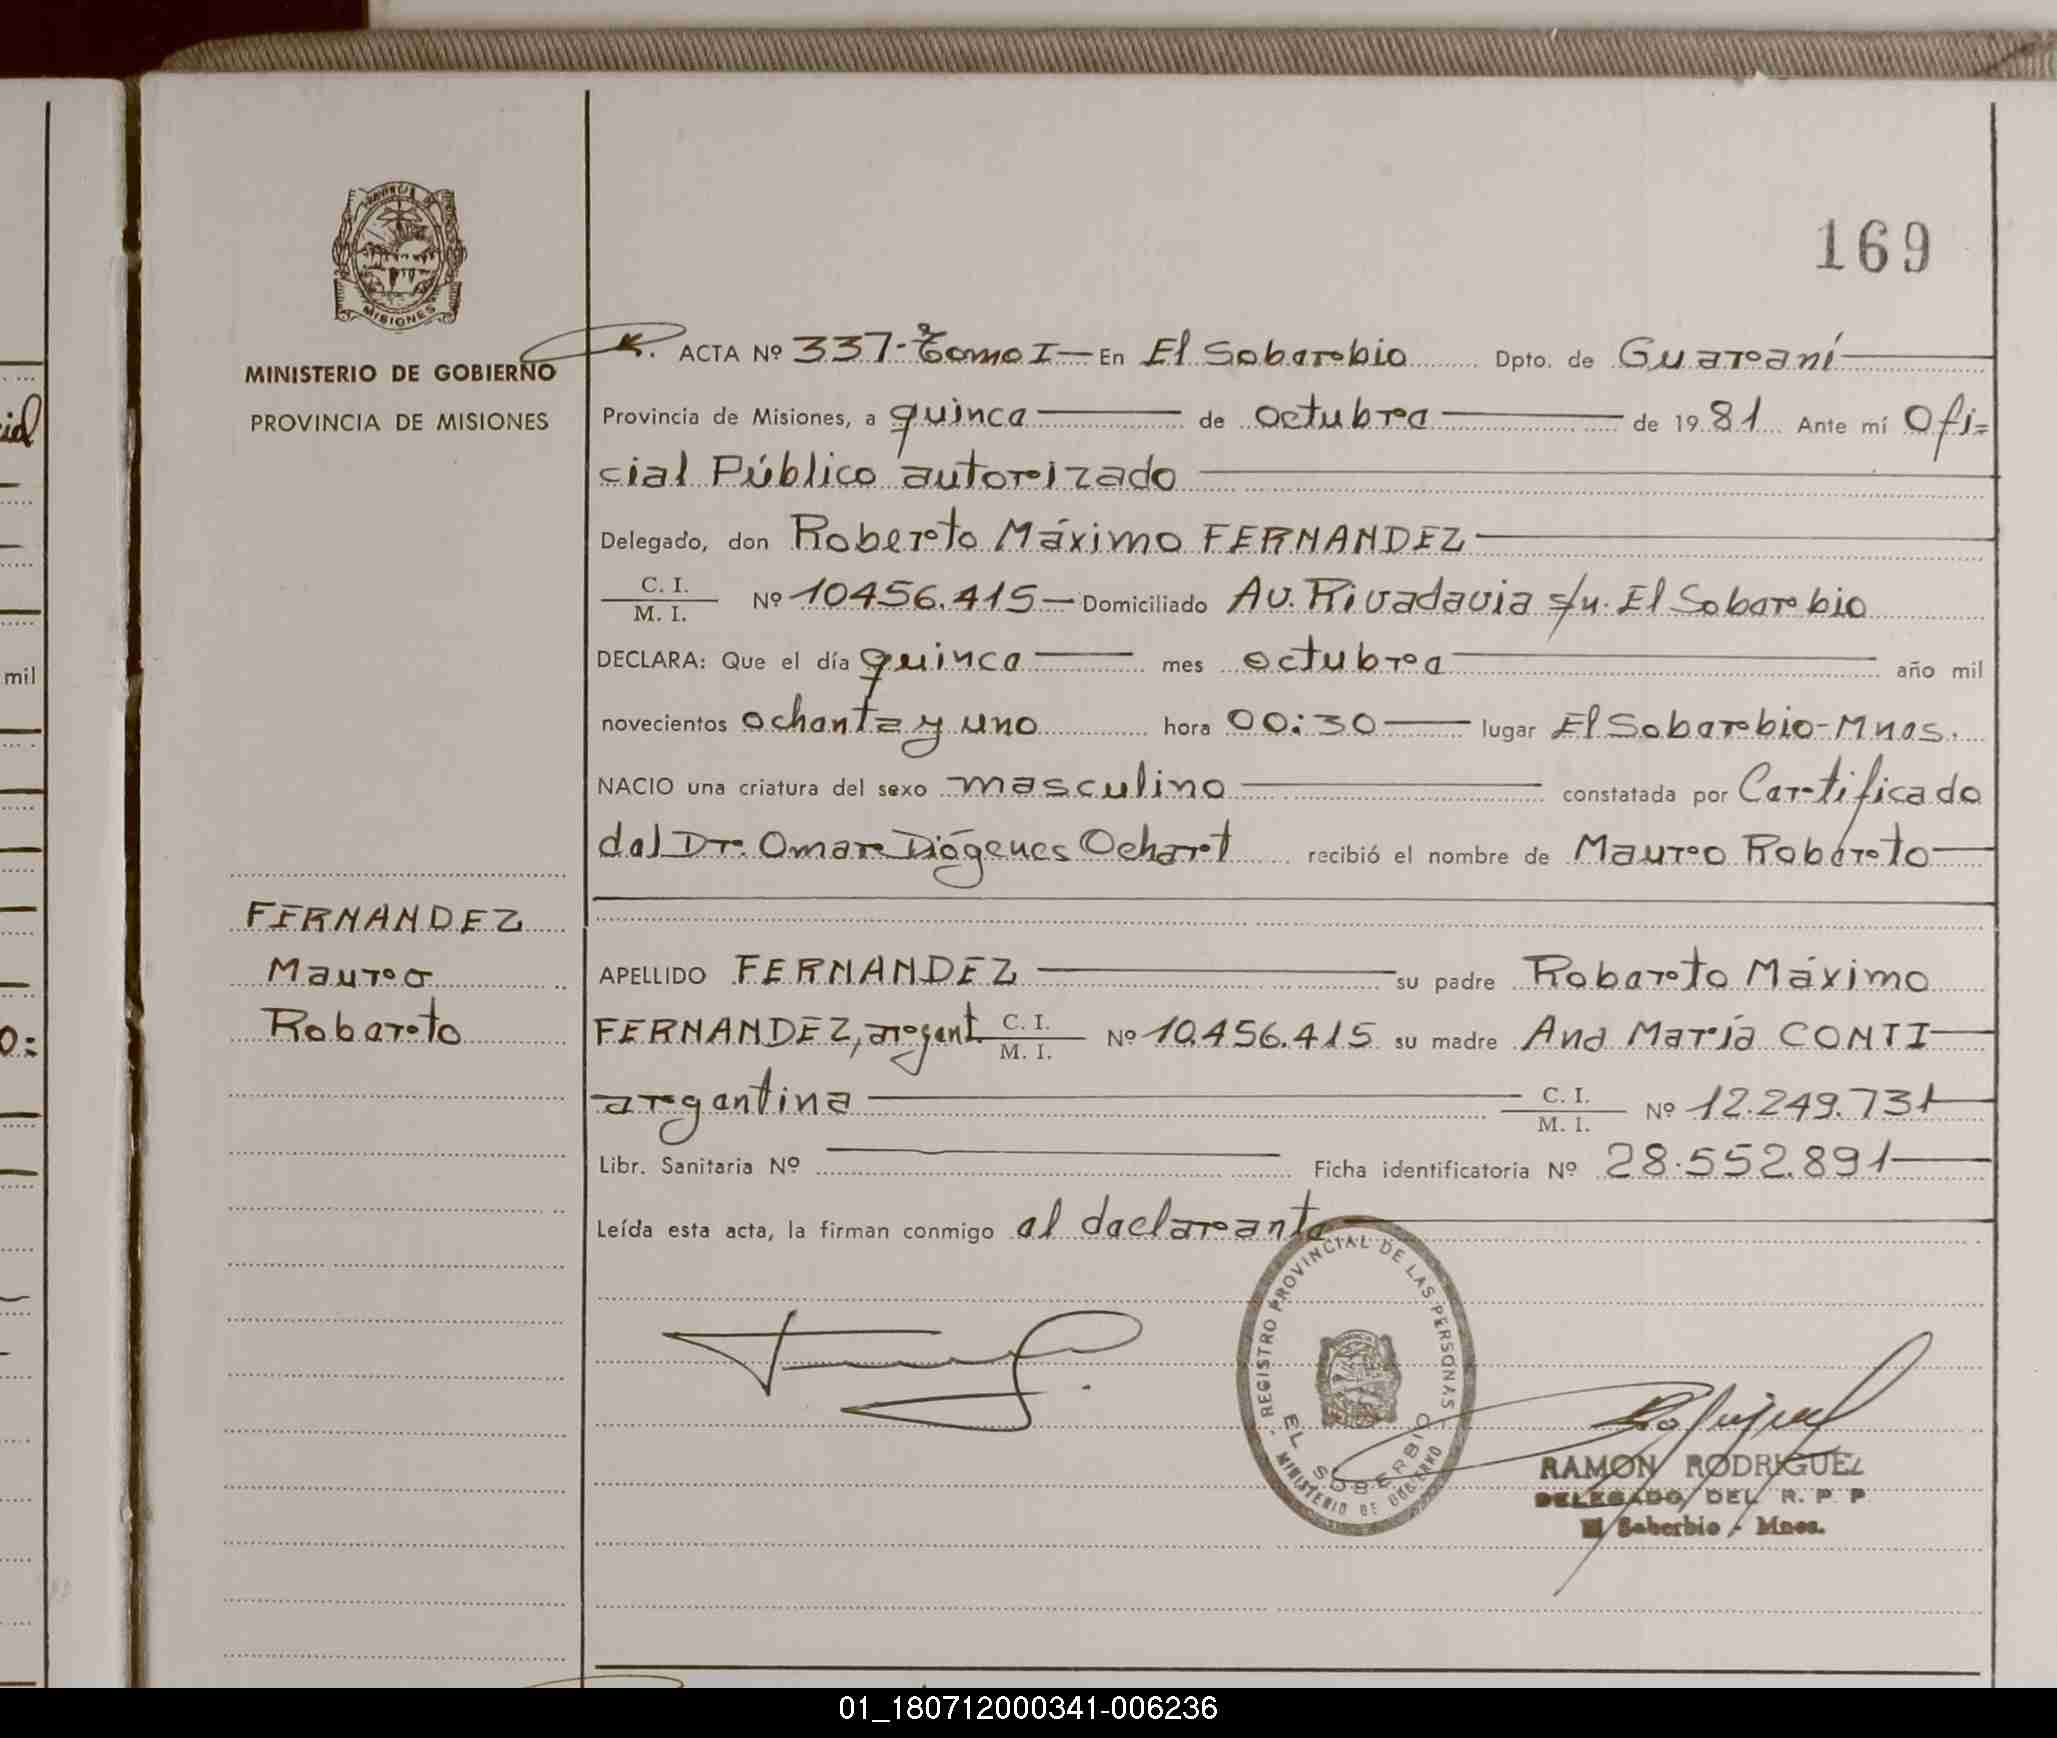 169
PROVINCIA DE
MISIONES
MINISTERIO DE GOBIERNO
PROVINCIA DE MISIONES
ACTA Nº 337-Tomo I- En El Soberbio Dpto. de Guaraní
Provincia de Misiones, a quince de octubre de 1981. Ante mí Ofi=
cial Público autorizado
Delegado, don Roberto Máximo FERNANDEZ
C. I.
M. I. Nº 10456.415- Domiciliado Av. Rivadavia s/n. El Soberbio
DECLARA: Que el día quince mes octubre año mil
novecientos ochenta y uno hora 00:30 lugar El Soberbio-Mnes.
NACIO una criatura del sexo masculino constatada por Certificado
del Dr. Omar Diógenes Ochert recibió el nombre de Mauro Roberto
FERNANDEZ
Mauro
Roberto
APELLIDO FERNANDEZ su padre Roberto Máximo
FERNANDEZ, argent C. I. M. I. Nº 10.456.415 su madre Ana María CONTI
argentina C. I. M. I. Nº 12.249.731
Libr. Sanitaria Nº Ficha identificatoria Nº 28.552.891
Leída esta acta, la firman conmigo el declarante
REGISTRO PROVINCIAL DE LAS PERSONAS
EL SOBERBIO
MINISTERIO DE GOBIERNO
RAMON RODRIGUEZ
DELEGADO DEL R. P. P.
El Soberbio - Mnes.
mil
01_180712000341-006236